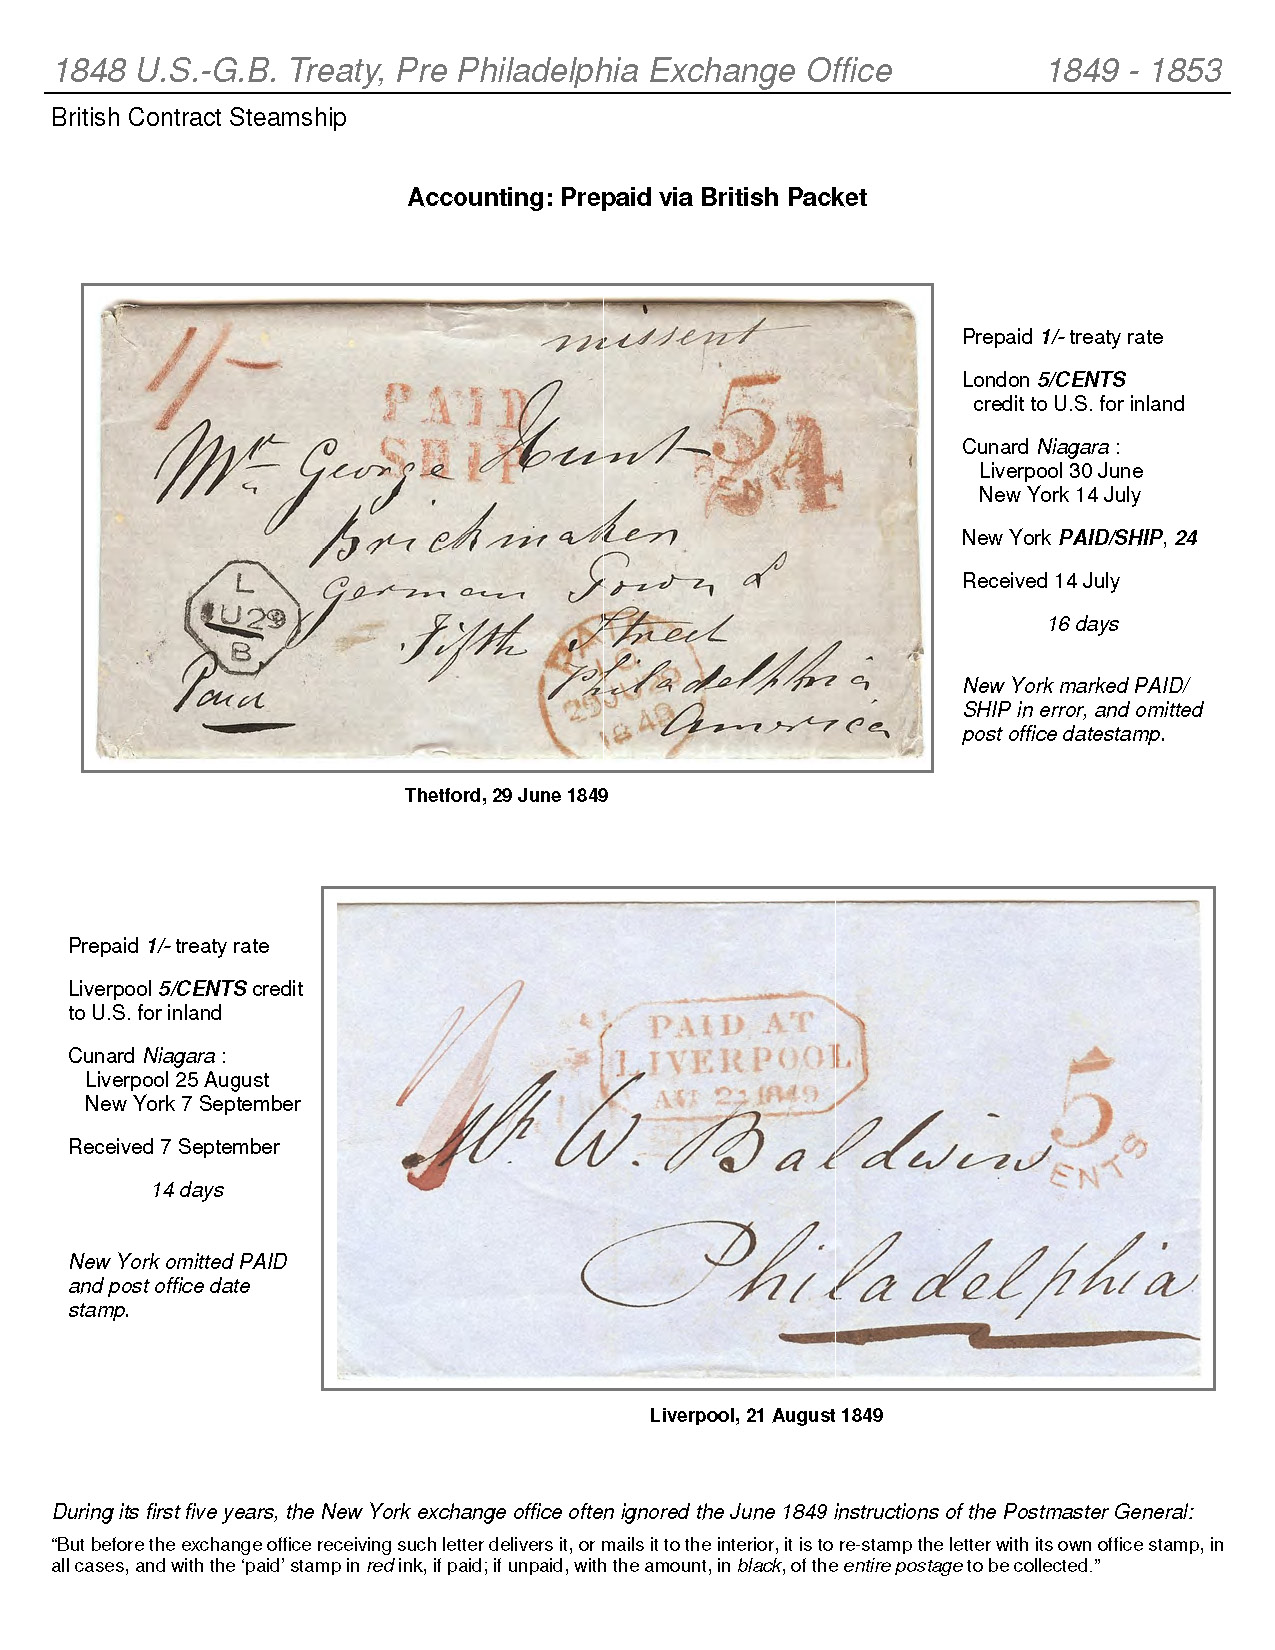 1848 U.S.-G.B. Treaty, Pre Philadelphia Exchange Office 1849 - 1853
British Contract Steamship
Accounting: Prepaid via British Packet
missent
1/-
PAID
SHIP
5
CENTS
24
Mr George Hunt
Brickmaker
German Town
Fifth Street
Philadelphia
America
L
JU29
B
Paid
PAID
29JU29
1849
Prepaid 1/- treaty rate
London 5/CENTS
credit to U.S. for inland
Cunard Niagara :
Liverpool 30 June
New York 14 July
New York PAID/SHIP, 24
Received 14 July
16 days
New York marked PAID/
SHIP in error, and omitted
post office datestamp.
Thetford, 29 June 1849
Prepaid 1/- treaty rate
Liverpool 5/CENTS credit
to U.S. for inland
Cunard Niagara :
Liverpool 25 August
New York 7 September
Received 7 September
14 days
New York omitted PAID
and post office date
stamp.
PAID AT
LIVERPOOL
AU 22 1849
5
CENTS
Mr. W. Baldwin
Philadelphia
Liverpool, 21 August 1849
During its first five years, the New York exchange office often ignored the June 1849 instructions of the Postmaster General:
“But before the exchange office receiving such letter delivers it, or mails it to the interior, it is to re-stamp the letter with its own office stamp, in
all cases, and with the ‘paid’ stamp in red ink, if paid; if unpaid, with the amount, in black, of the entire postage to be collected.”